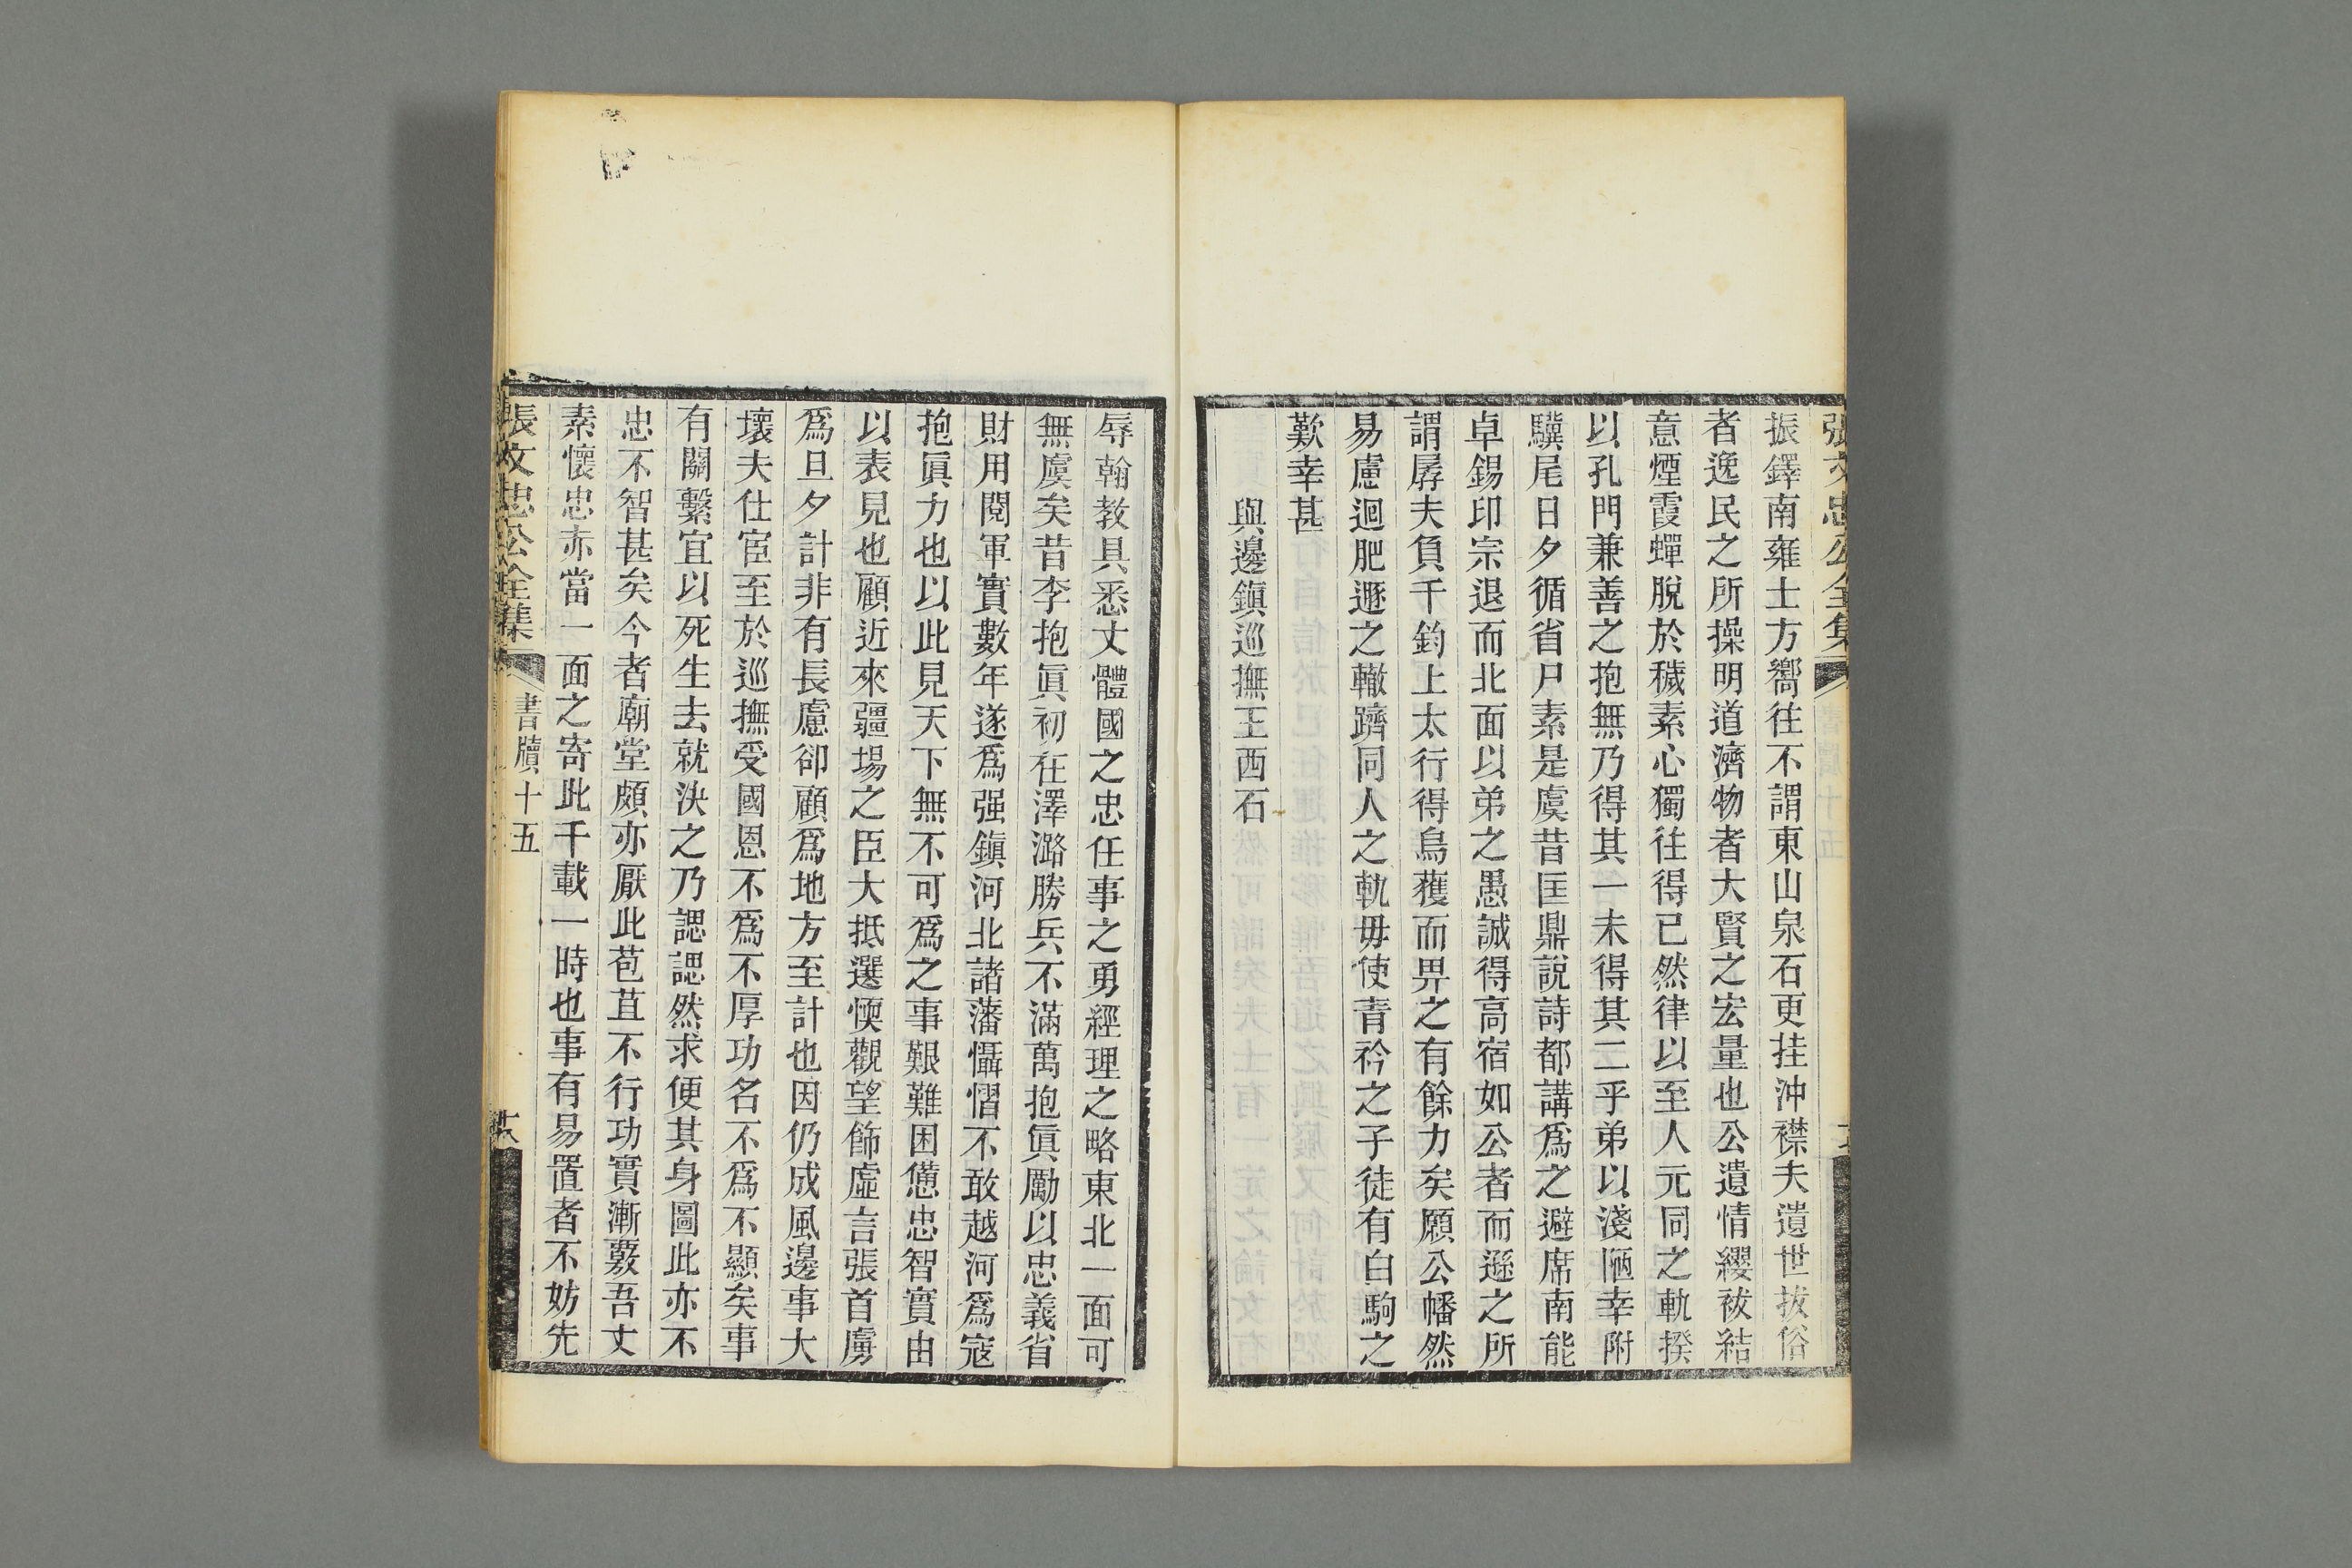 張文忠公全集
振鐸南雍士方嚮往不謂東山泉石更挂沖襟夫遺世拔俗
者逸民之所操明道濟物者大賢之宏量也公遺情纓祓結
意煙霞蟬脫於穢素心獨往得已然律以至人元同之軌揆
以孔門兼善之抱無乃得其一未得其二乎弟以淺陋幸附
驥尾日夕循省尸素是虞昔匡鼎說詩都講爲之避席南能
卓錫印宗退而北面以弟之愚誠得高宿如公者而遜之所
謂孱夫負千鈞上太行得烏獲而畀之有餘力矣願公幡然
易慮迴肥遯之轍躋同人之軌毋使青衿之子徒有白駒之
歎幸甚
與邊鎮巡撫王西石
辱翰教具悉丈體國之忠任事之勇經理之略東北一面可
無虞矣昔李抱眞初在澤潞勝兵不滿萬抱眞勵以忠義省
財用閱軍實數年遂爲强鎮河北諸藩懾慴不敢越河爲寇
抱眞力也以此見天下無不可爲之事艱難困憊忠智實由
以表見也顧近來疆場之臣大抵選愞觀望飾虛言張首虜
爲旦夕計非有長慮卻顧爲地方至計也因仍成風邊事大
壞夫仕宦至於巡撫受國恩不爲不厚功名不爲不顯矣事
有關繫宜以死生去就決之乃諰諰然求便其身圖此亦不
忠不智甚矣今者廟堂頗亦厭此苞苴不行功實漸覈吾丈
素懷忠亦當一面之寄此千載一時也事有易置者不妨先
張文忠公全集 書牘十五